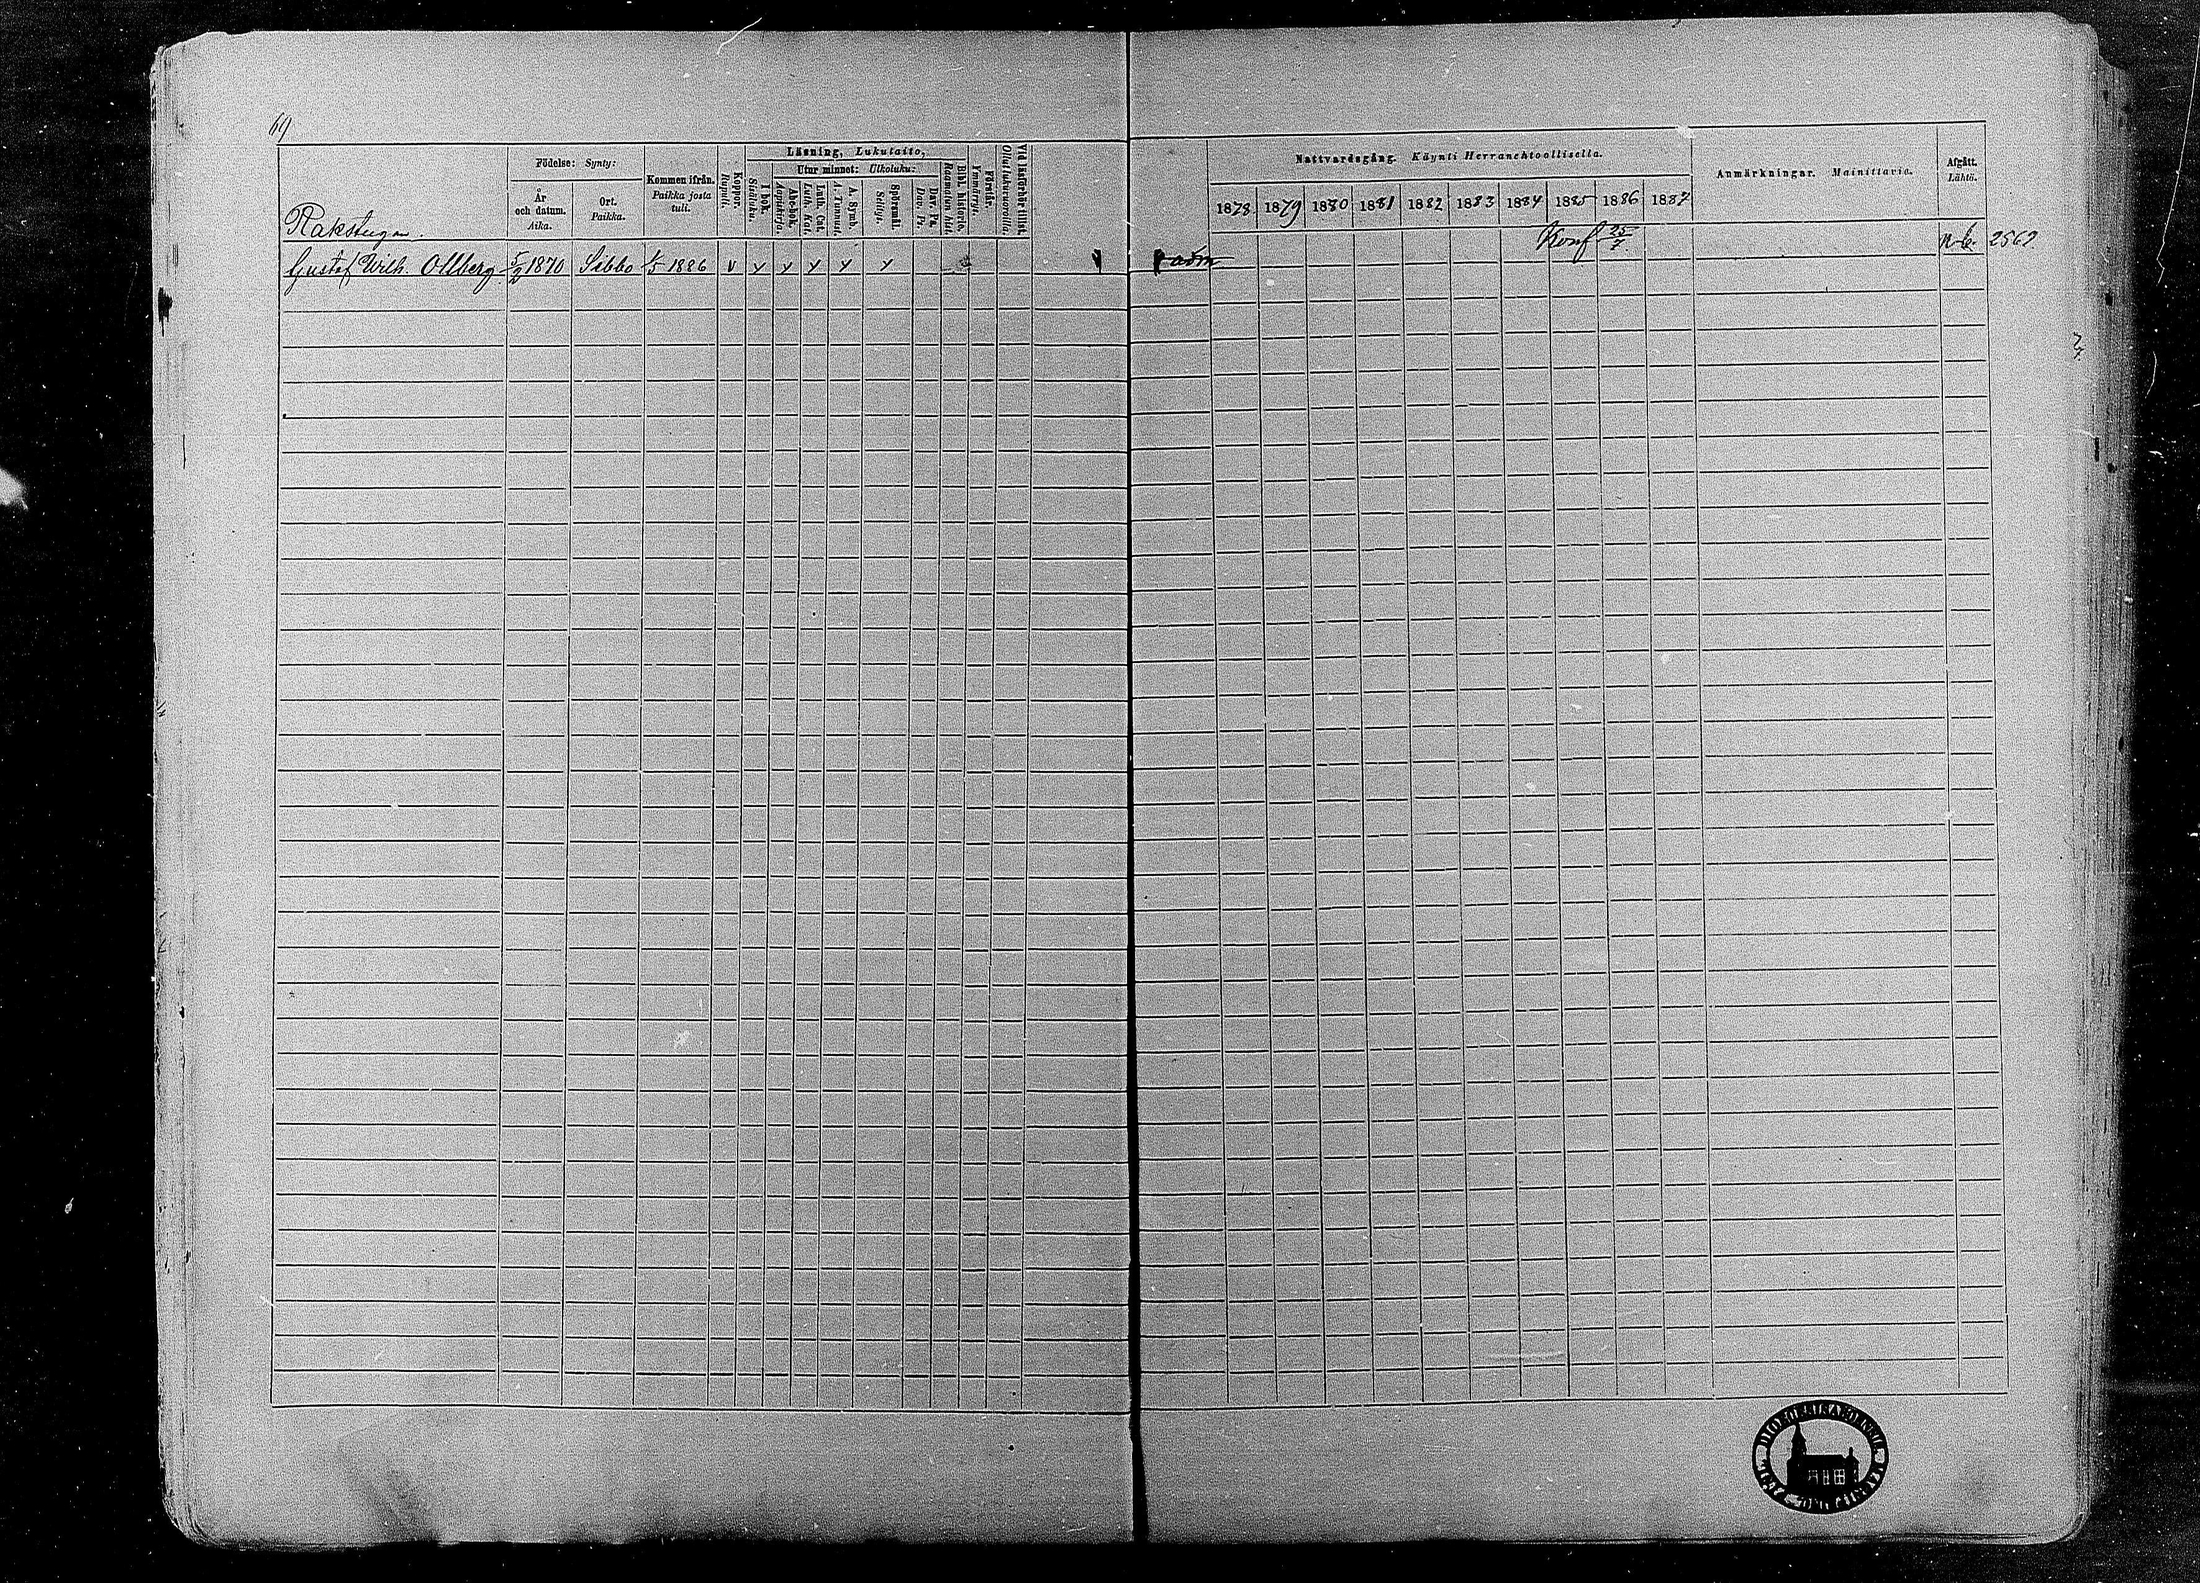 69
Födelse: Synty:
År och datum. Aika.
Ort. Paikka.
Kommen ifrån. Paikka josta tuli.
Koppor. Rupuli.
Läsning, Lukutaito,
I bok. Sisäluku.
Utur minnet: Ulkoluku:
Abc-bok. Aapiskirja.
Luth. Cat. Luth. Kat.
A. Symb. A. Tunnust.
Spörsmål. Selitys.
Dav. Ps. Dav. Ps.
Bibl. historie. Raamatun hist.
Förstår. Ymmärrys.
Vid läsförhör tillst. Ollut lukuvuorolla.
Nattvardsgång. Käynti Herranehtoollisella.
1878 1879 1880 1881 1882 1883 1884 1885 1886 1887
Anmärkningar. Mainittavia.
Afgått. Lähtö.
Rakstugan.
Konf 25/7
2562
Gustaf Wilh. Ollberg 5/2 1870 Sibbo 1/5 1886 v y y y y y adm